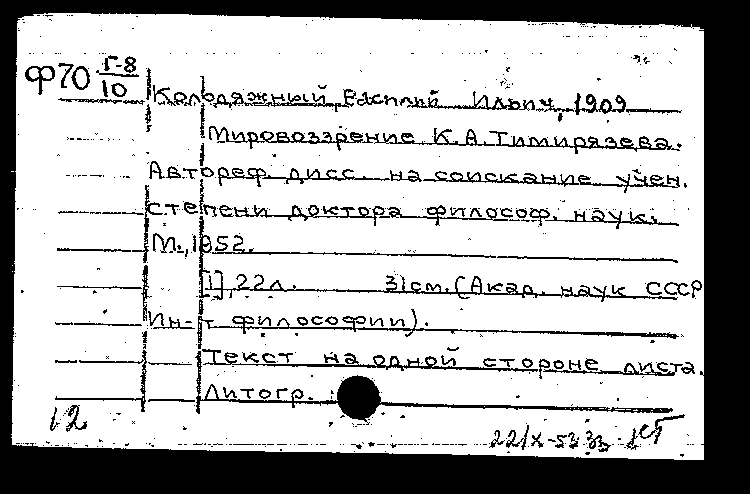 Ф70 Г-8
10
Колодяжный, Василий Ильич, 1909
Мировоззрение К.А.Тимирязева.
Автореф. дисс. на соискание учен.
степени доктора философ. наук.
М., 1952.
[1], 22л. 31см. (Акад. наук СССР
Ин-т философии).
Текст на одной стороне листа.
Литогр.
12
22/X-53